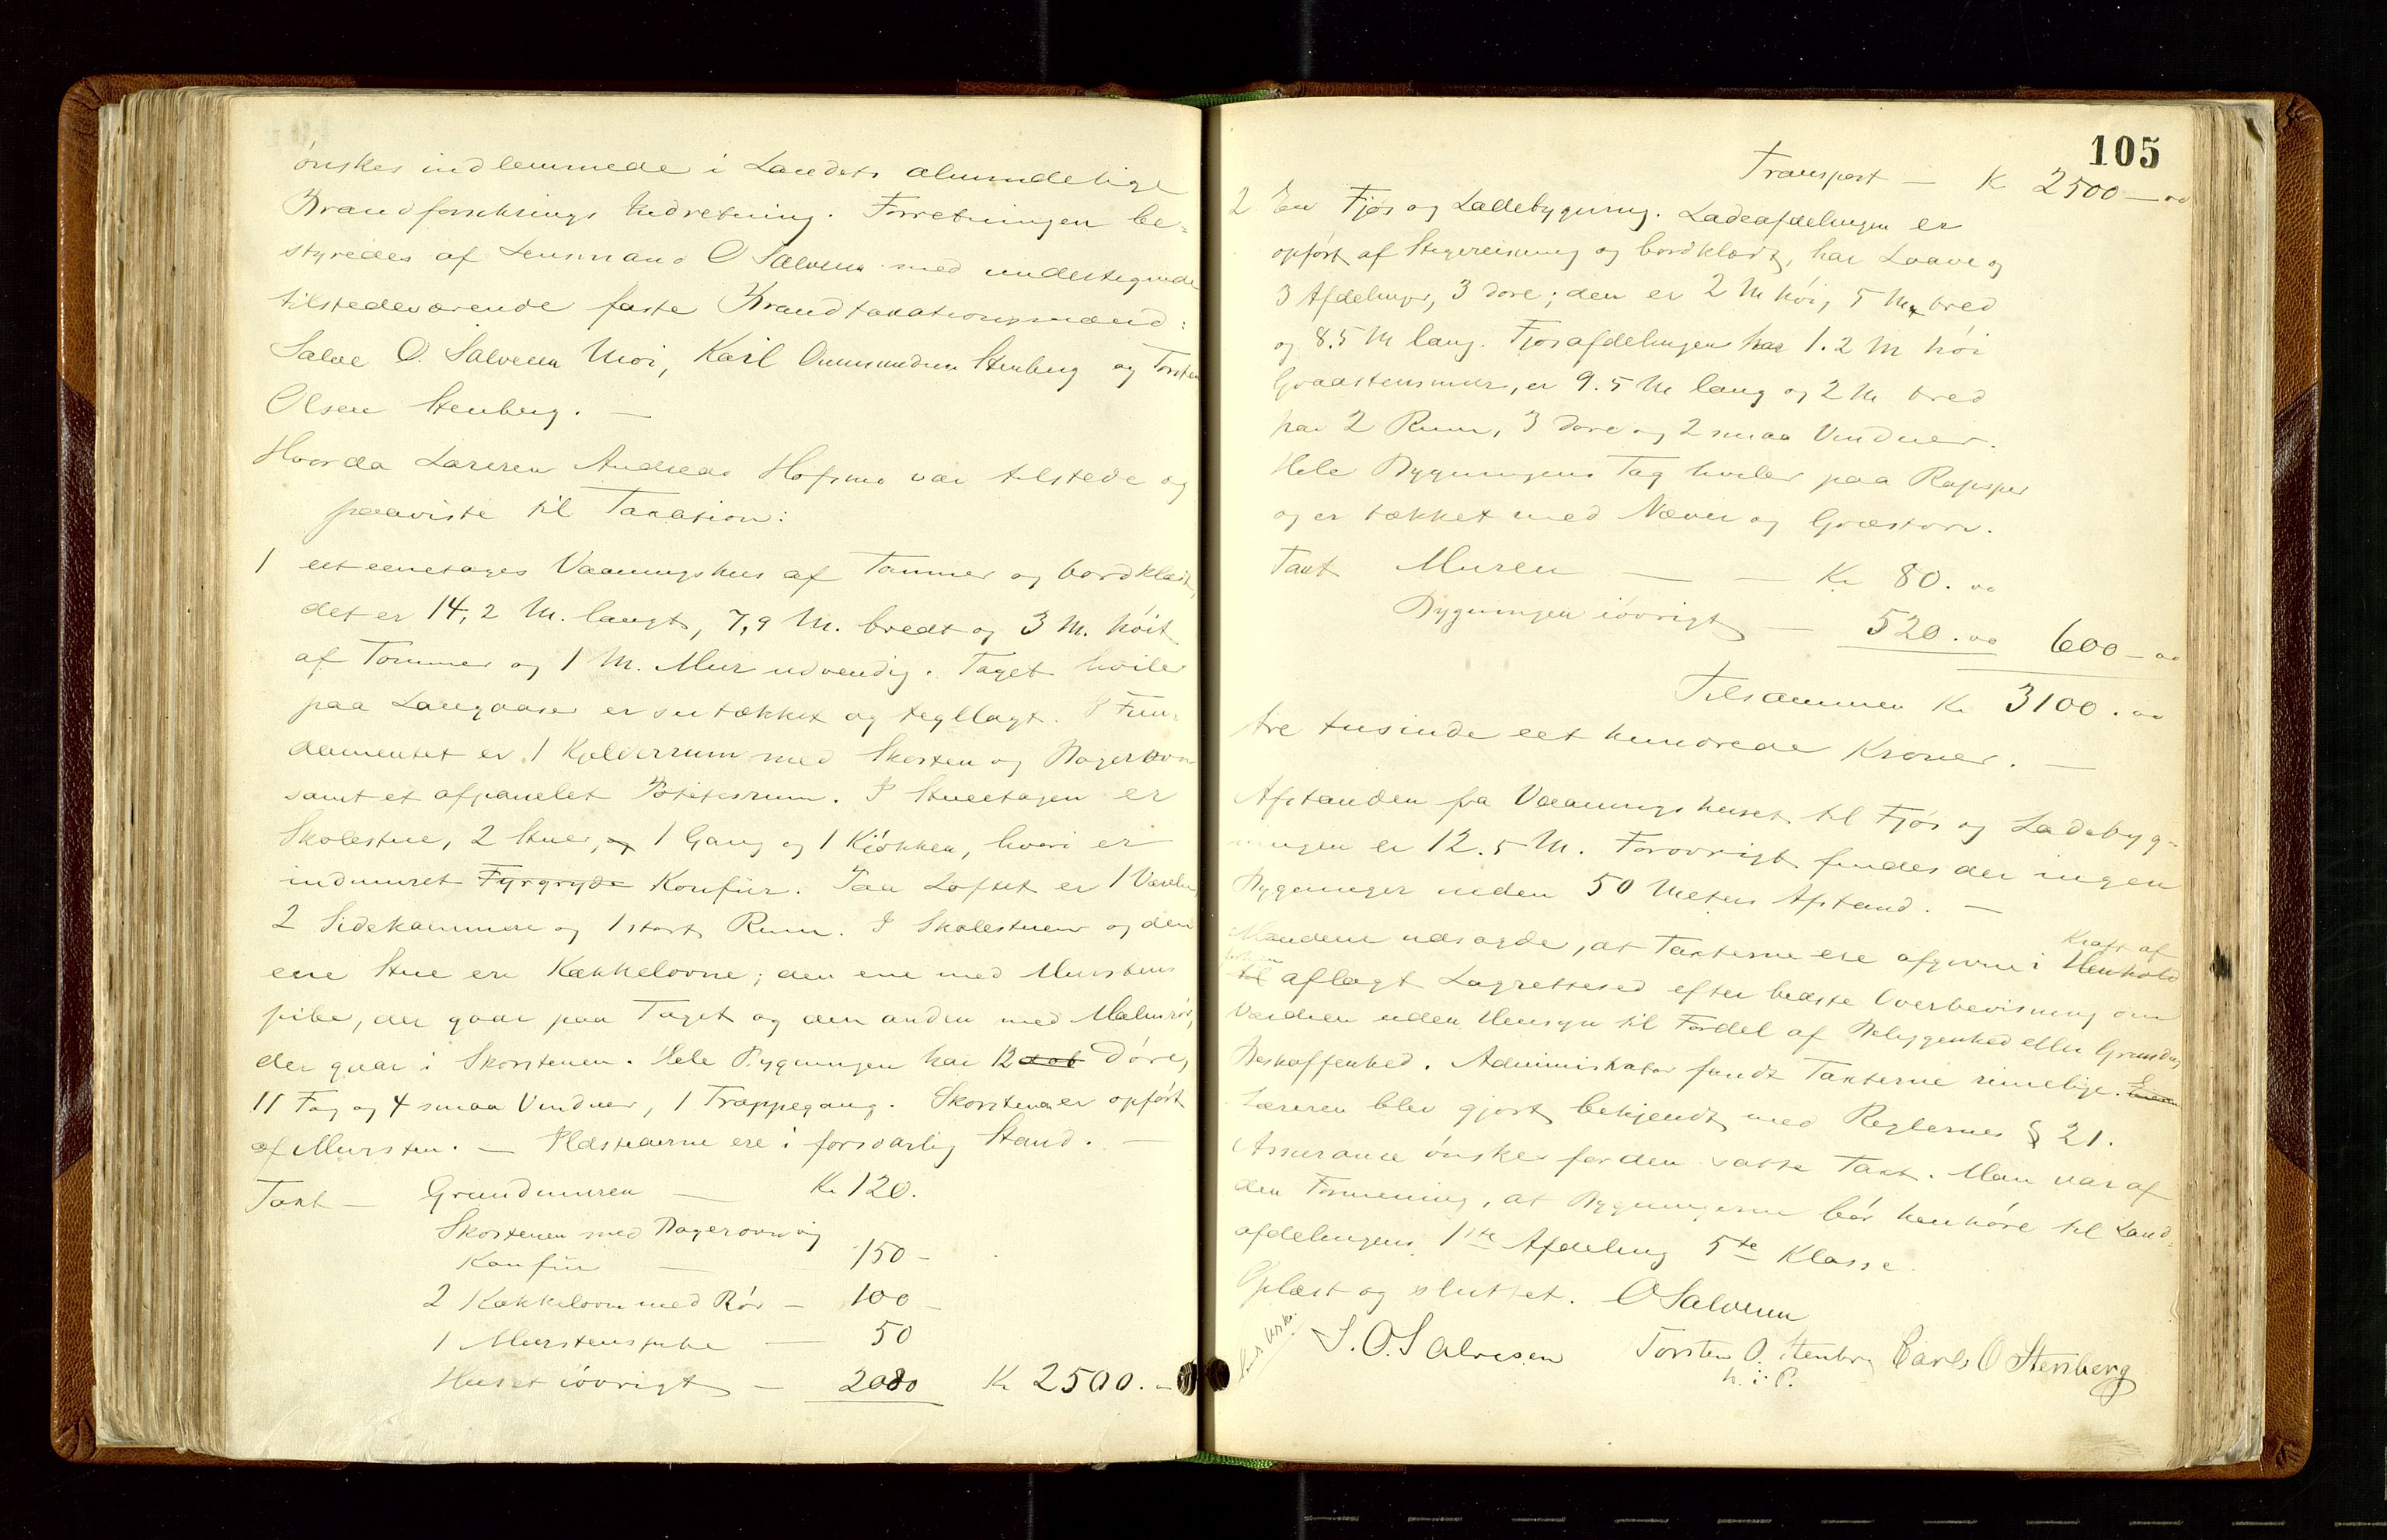 ønskes indlemmede i Landets almindelige
Brandforsikrings Indretning. Forretningen be-
styredes af Lensmand O Salvesen med undertegnede
tilstedeværende faste Brandtaxationsmænd:
Salve O. Salvesen Moi, Karl Ommundsen Stenberg og Torsten
Olsen Stenberg. —
Hvorda Læreren Andreas Hofsmo var tilstede og
paaviste til Taxation:
1 eet eenetages Vaaningshus af Tømmer og bordklædt,
det er 14,2 M. langt, 7,9 M. bredt og 3 M. høit
af Tømmer og 1 M. Mur udvendig. Taget hviler
paa Langaaser er sutækket og tegllagt. I Fun-
damentet er 1 Kjelderrum med Skorsten og Bagerovn
samt et afpanelet Potetesrum. I Stueetagen er
Skolestue, 2 Stuer, og 1 Gang og 1 Kjøkken, hvori er
indmuret Fyrgryde Komfür. Paa Loftet er 1 Værelse,
2 Sidekammere og 1 stort Rum. I Skolestuen og den
ene Stue ere Kakkelovne; den ene med Murstens
pibe, der gaar paa Taget og den anden med Malmrør,
der gaar i Skorstenen. Hele Bygningen har 12 Døre,
11 Fag og 4 smaa Vinduer, 1 Trappegang. Skorstenen er opført
af Mursten. — Ildstederne ere i forsvarlig Stand. —
Taxt — Grundmuren — Kr 120.
Skorstenen med Bagerovn og
Komfür — 150 —
2 Kakkelovne med Rør — 100 —
1 Murstenspibe — 50
Huset iøvrigt — 2080 Kr 2500. —
105
Transport — Kr 2500 — oo
2 En Fjøs og Ladebygning. Ladeafdelingen er
opført af Stavreisning og bordklædt, har Laave og
3 Afdelinger, 3 Døre; den er 2 M høi, 5 M bred
og 8.5 M lang. Fjøsafdelingen har 1.2 M høi
Graastensmur, er 9.5 M lang og 2 M bred
har 2 Rum, 3 Døre og 2 smaa Vinduer.
Hele Bygningens Tag hviler paa
og er tækket med Næver og Græstorv.
Taxt Muren — — Kr 80. oo
Bygningen iøvrigt — 520. oo 600 — oo
Tilsammen Kr 3100. oo
tre tusinde eet hundrede Kroner. —
Afstanden fra Vaaningshuset til Fjøs og Ladebyg-
ningen er 12.5 M. Forøvrigt findes der ingen
Bygninger inden 50 Meters Afstand. —
Mændene udsagde, at Taxterne ere afgivne i Henhold
Kraft af
til aflagt Lagrettesed efter bedste Overbevisning om
Værdien uden Hensyn til Fordel af Beliggenhed eller Grundens
Beskaffenhed. Administrator fandt Taxterne rimelige.
Læreren blev gjort bekjendt med Reglernes § 21.
Assurance ønskes for den satte Taxt. Man var af
den Formening, at Bygningerne bør henhøre til Land-
afdelingens 1ste Afdeling 5te Klasse.
Oplæst og sluttet. O Salvesen
S. O. Salvesen Torsten O. Stenberg Carl O Stenberg
h. i. P.